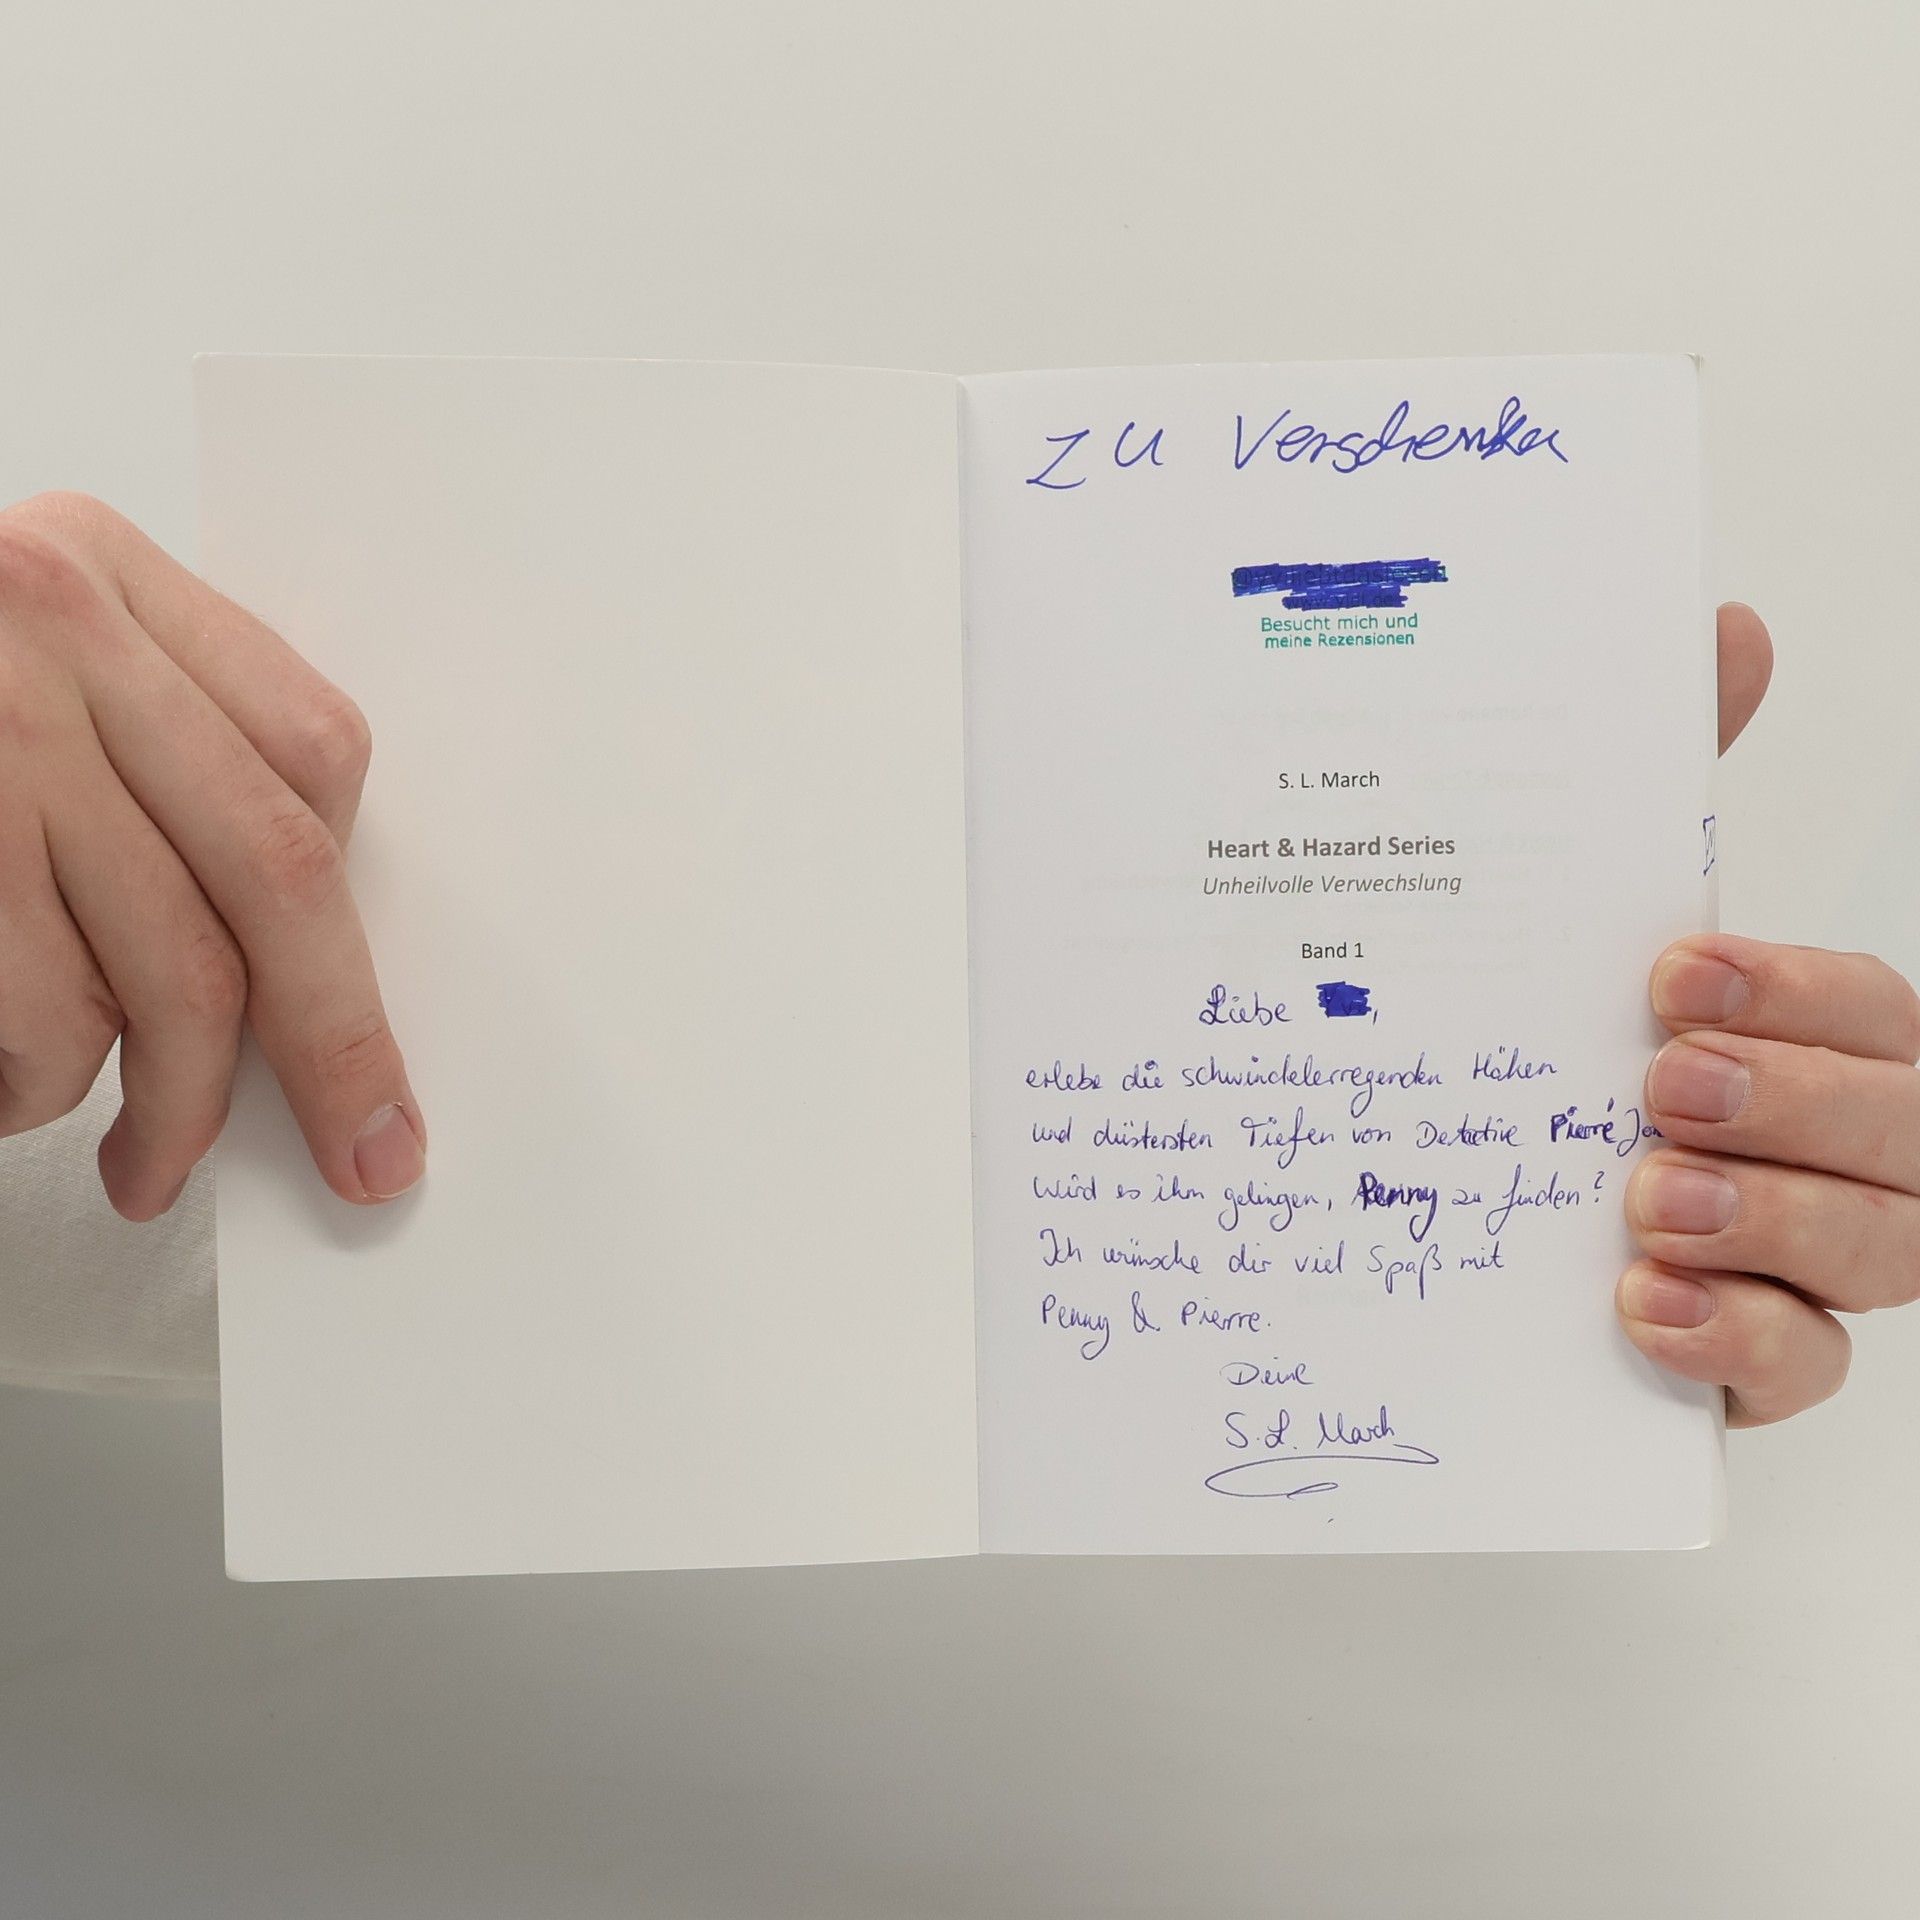 zu Verschenken
Besucht mich und
meine Rezensionen
S. L. March
Heart & Hazard Series
Unheilvolle Verwechslung
Band 1
Liebe ,
erlebe die schwindelerregenden Höhen
und düstersten Tiefen von Detective Pierré
Wird es ihm gelingen, Penny zu finden?
Ich wünsche dir viel Spaß mit
Penny & Pierre.
Deine
S. L. March